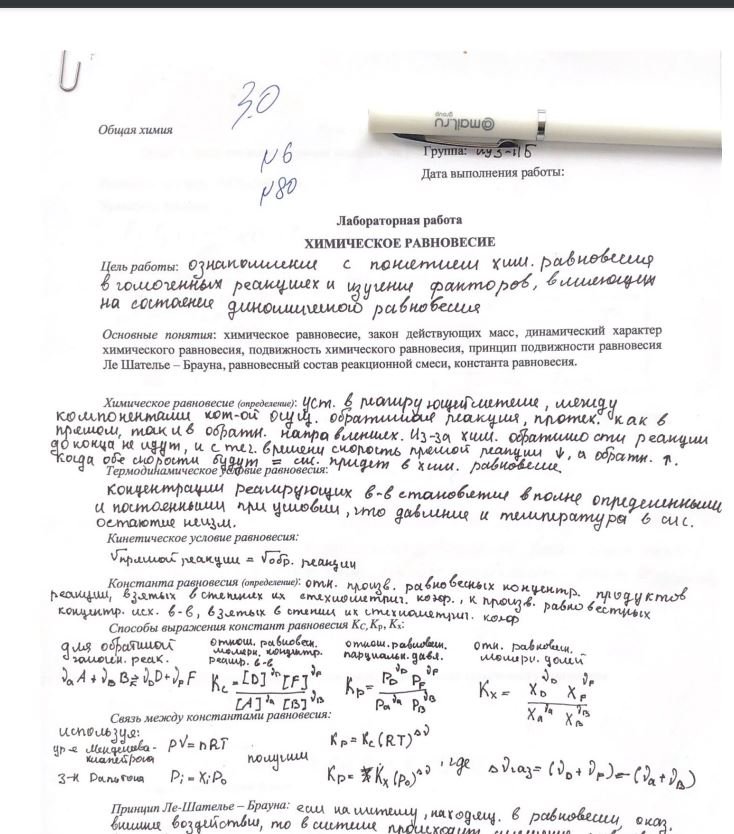 3.0
Общая химия
@mail.ru
group
№6
Группа:
№80
Дата выполнения работы:
Лабораторная работа
ХИМИЧЕСКОЕ РАВНОВЕСИЕ
Цель работы: ознакомление с понятием хим. равновесия
в гомогенных реакциях и изучение факторов, влияющих
на состояние динамического равновесия
Основные понятия: химическое равновесие, закон действующих масс, динамический характер
химического равновесия, подвижность химического равновесия, принцип подвижности равновесия
Ле Шателье – Брауна, равновесный состав реакционной смеси, константа равновесия.
Химическое равновесие (определение): уст. в реагирующей системе, между
компонентами кот-ой осущ. обратимая реакция, протек. как в
прямом, так и в обратн. направлениях. Из-за хим. обратимости реакции
до конца не идут, и с теч. времени скорость прямой реакции ↓, а обратн. ↑.
Когда обе скорости будут = сис. придет в хим. равновесие.
Термодинамическое условие равновесия:
концентрации реагирующих в-в становятся вполне определенными
и постоянными при условии, что давление и температуры в сис.
остаются неизм.
Кинетическое условие равновесия:
Vпрямой реакции = Vобр. реакции
Константа равновесия (определение): отн. произв. равновесных концентр. продуктов
реакции, взятых в степенях их стехиометрич. коэф., к произв. равновестных
концентр. исх. в-в, взятых в степени их стехиометрич. коэф
Способы выражения констант равновесия Kc, Kp, Kx:
для обратимой гомоген. реак.
νaA + νвB ⇄ νDD + νFF
отнош. равновесн. молярн. концентр. реагир. в-в
Kc = [D]^νD [F]^νF / [A]^νa [B]^νB
отнош. равновесн. парциальн. давл.
Kp = PD^νD PF^νF / Pa^νa PB^νB
отн. равновесн. молярн. долей
Kx = XD^νD XF^νF / XA^νa XB^νB
Связь между константами равновесия:
используя:
ур-е Менделеева-Клапейрона PV = nRT получим Kp = Kc (RT)^Δν
з-н Дальтона Pi = XiP0 Kp = Kx (P0)^Δν, где Δνгаз = (νD + νF) – (νa + νB)
Принцип Ле-Шателье – Брауна: если на систему, находящ. в равновесии, оказ.
внешнее воздействие, то в системе происходит